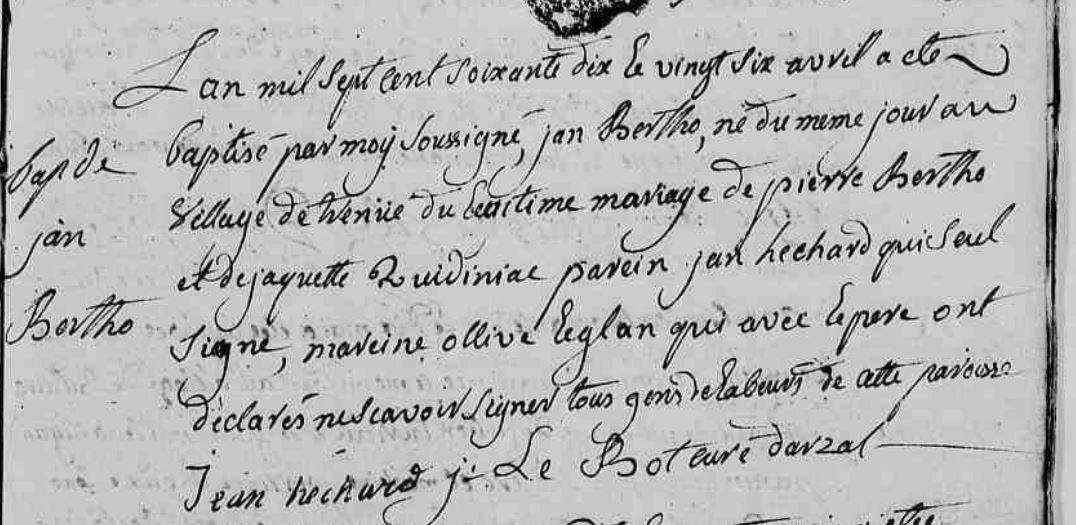 Lan mil sept cent soixante dix le vingt six avril a ete
bap de
baptisé par moy soussigné, jan Bertho, né du meme jour au
village de trenüe du legitime mariage de pierre Bertho
jan
et de jaquette Quidiniac parein jan hechard qui seul
Bertho
signe, mareine ollive leglan qui avec le pere ont
déclarés ne scavoir signer tous gens de labeurs de cette paroisse
Jean hechard j: Le Bot curé darzal